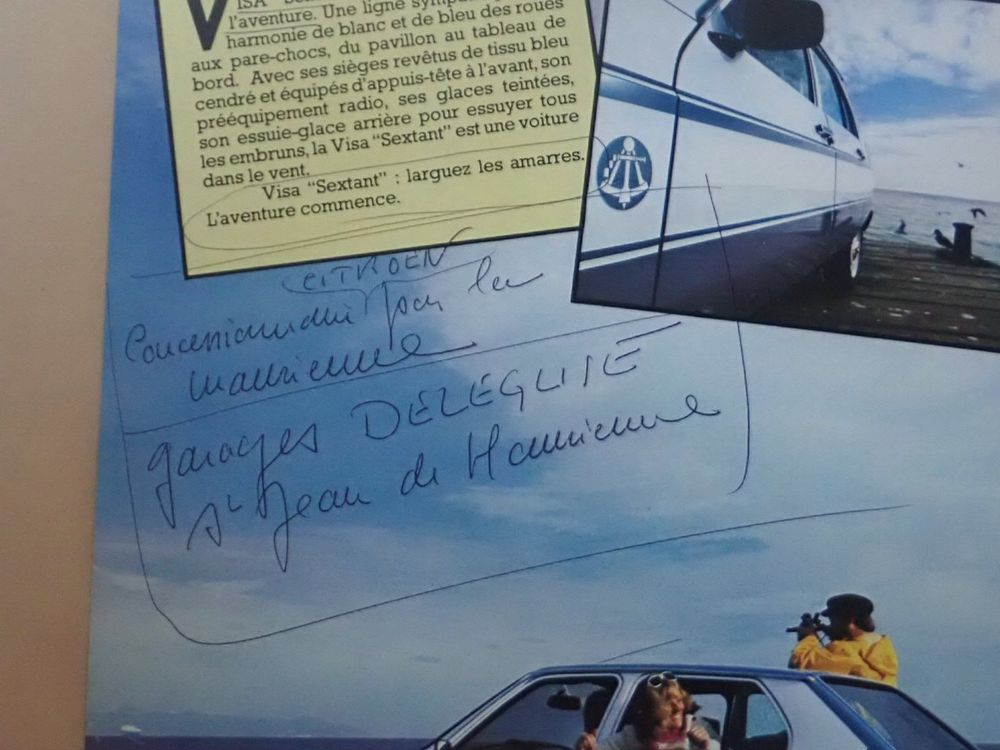 VISA
l'aventure. Une ligne
harmonie de blanc et de bleu des roues
aux pare-chocs, du pavillon au tableau de
bord. Avec ses sièges revêtus de tissu bleu
cendré et équipés d'appuis-tête à l'avant, son
prééquipement radio, ses glaces teintées,
son essuie-glace arrière pour essuyer tous
les embruns, la Visa "Sextant" est une voiture
dans le vent.
Visa "Sextant" : larguez les amarres.
L'aventure commence.
CITROEN
Concessionnaire pour la
Maurienne
garages DELEGLISE
St Jean de Maurienne